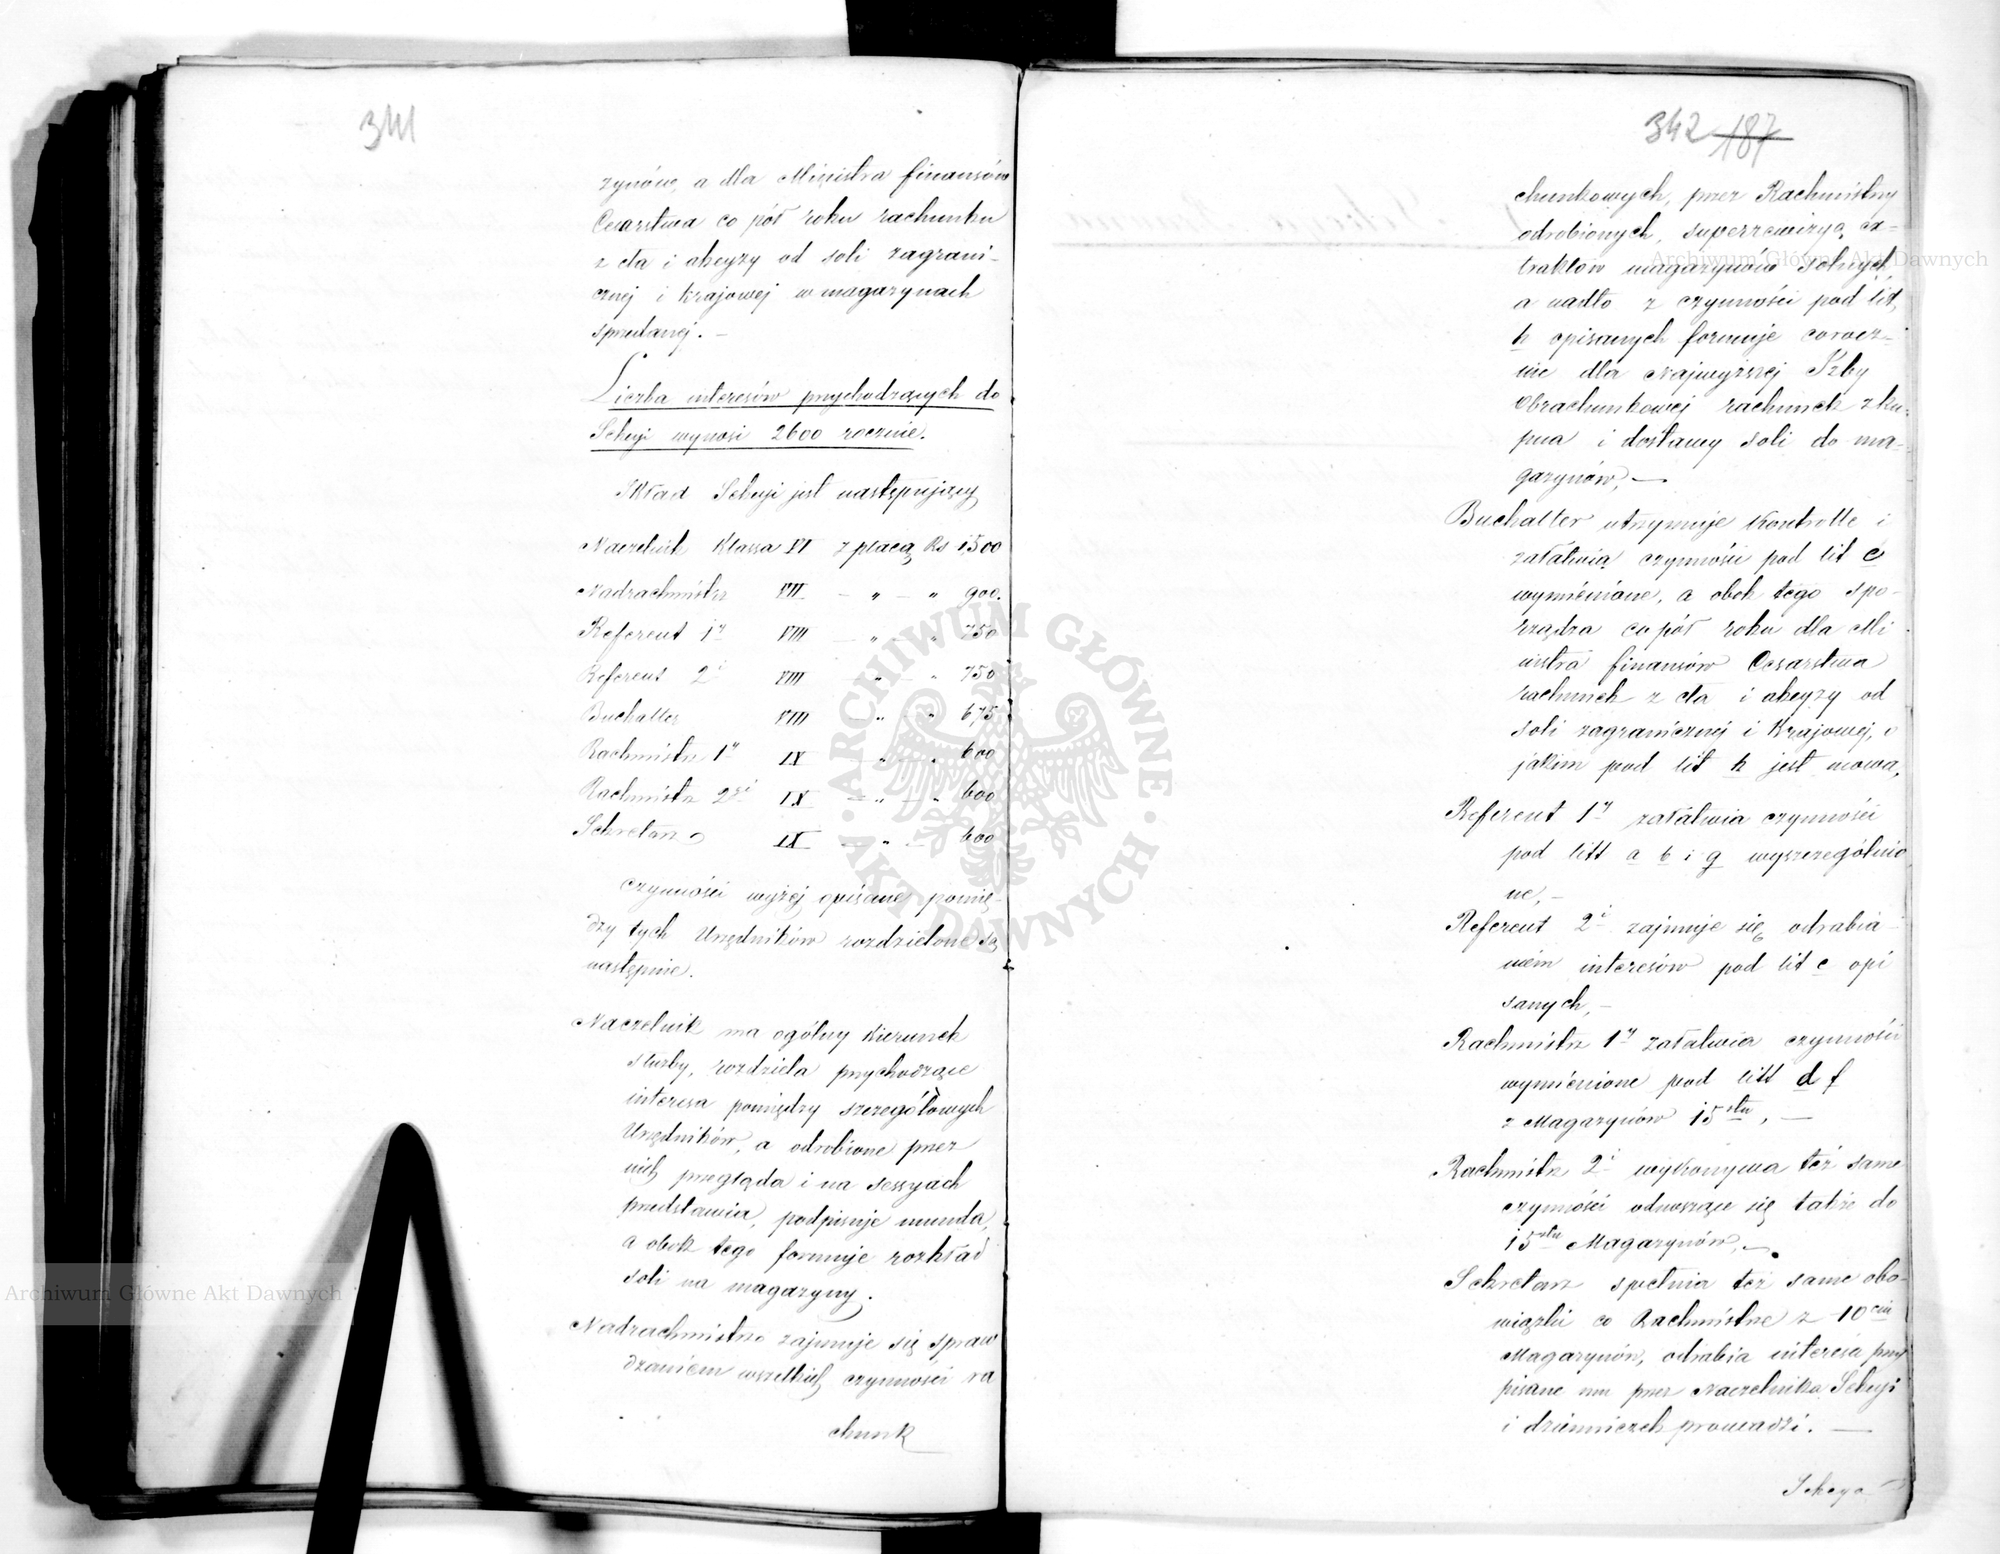 341
zynów, a dla Ministra finansów
Cesarstwa co pół roku rachunku
z cła i akcyzy od soli zagrani-
cznej i krajowej w magazynach
sprzedanej. —
Liczba interesów przychodzących do
Sekcyi wynosi 2600 rocznie.
Skład Sekcyi jest następujący
Naczelnik Klassa VI z płacą Rs 1500
Nadrachmistrz VII — „ — „ 900.
Referent 1y VIII — „ — „ 750
Referent 2i VIII — „ — „ 750
Buchalter VIII — „ — „ 675
Rachmistrz 1y IX — „ — „ 600
Rachmistrz 2gi IX — „ — „ 600
Sekretarz IX — „ — 600
czynności wyżej opisane pomię-
dzy tych Urzędników rozdzielone są
następnie.
Naczelnik ma ogólny kierunek
służby, rozdziela przychodzące
interesa pomiędzy szczegółowych
Urzędników, a odrobione przez
nich przegląda i na sessyach
przedstawia, podpisuje munda,
a obok tego formuje rozkład
soli na magazyny.
Nadrachmistrz zajmuje się spraw
dzaniem wszelkich czynności ra
chunk
342 187
chunkowych, przez Rachmistrzy
odrobionych, superrewizyą ex-
traktów magazynów solnych,
a nadto z czynności pod lit,
h opisanych formuje corocz-
nie dla Najwyższej Izby
Obrachunkowej rachunek z ku-
pna i dostawy soli do ma-
gazynów, —
Buchalter utrzymuje kontrolle i
załatwia czynności pod lit c
wymienione, a obok tego spo-
rządza co pół roku dla Mi
nistra finansów Cesarstwa
rachunek z cła i akcyzy od
soli zagranicznej i krajowej, o
jakim pod lit h jest mowa,
Referent 1y załatwia czynności
pod litt a b i g wyszczególnio
ne, —
Referent 2i zajmuje się odrabia-
niem interesów pod lit e opi
sanych, —
Rachmistrz 1y załatwia czynności
wymienione pod litt d f
z Magazynów 15stu, —
Rachmistrz 2i wykonywa też same
czynności odnoszące się także do
15stu Magazynów, —
Sekretarz spełnia też same obo-
wiązki co Rachmistrze z 10ciu
Magazynów, odrabia interesa przy
pisane mu przez Naczelnika Sekcyi
i dzienniczek prowadzi. —
Sekcya
ARCHIWUM GŁÓWNE AKT DAWNYCH
Archiwum Główne Akt Dawnych
Archiwum Główne Akt Dawnych